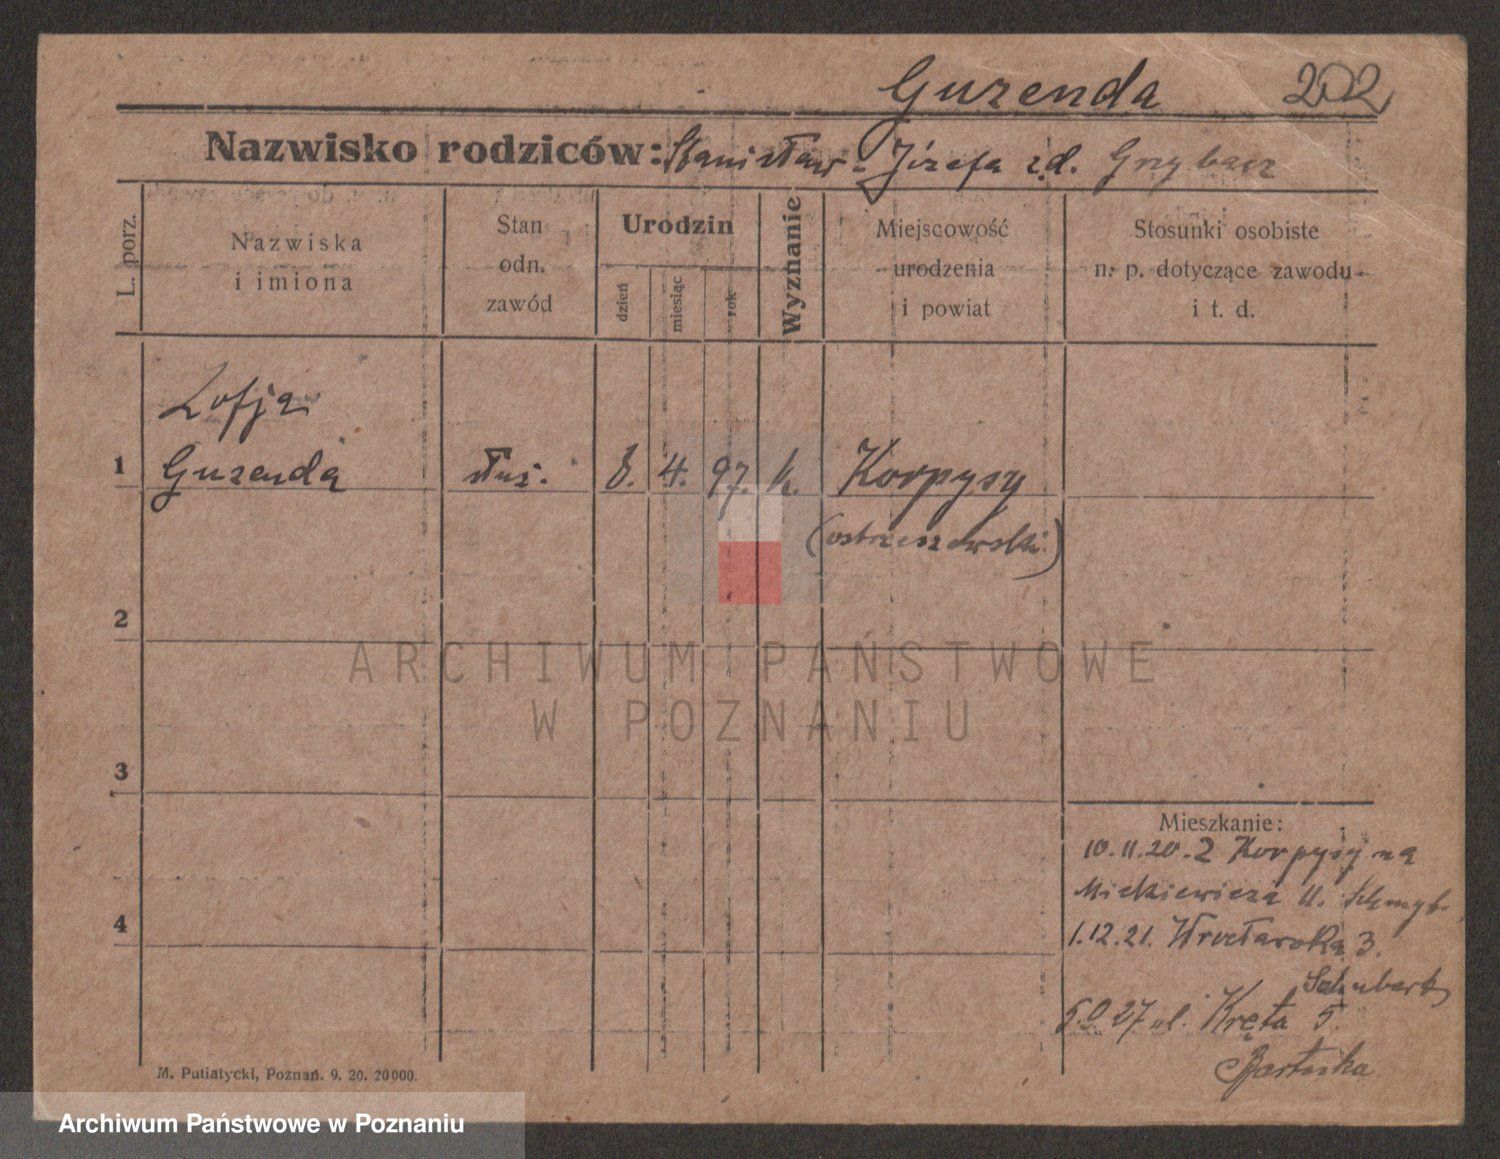 Guzenda 202
Nazwisko rodziców: Stanisław - Józefa z d. Grzybacz
L. porz.
Nazwiska
i imiona
Stan
odn.
zawód
Urodzin
dzień
miesiąc
rok
Wyznanie
Miejscowość
urodzenia
i powiat
Stosunki osobiste
n. p. dotyczące zawodu
i t. d.
Zofja
1 Guzenda służ. 8. 4. 97. k. Korpysy
(ostrzeszowski)
2
3
4
Mieszkanie:
10.11.20. Z Korpysy na
Mickiewicza 11.
1.12.21. Wrocławska 3.
Schubert
27 ul. Kręta 5
Bartoska
M. Putiatycki, Poznań. 9. 20. 20000.
ARCHIWUM PAŃSTWOWE
W POZNANIU
Archiwum Państwowe w Poznaniu